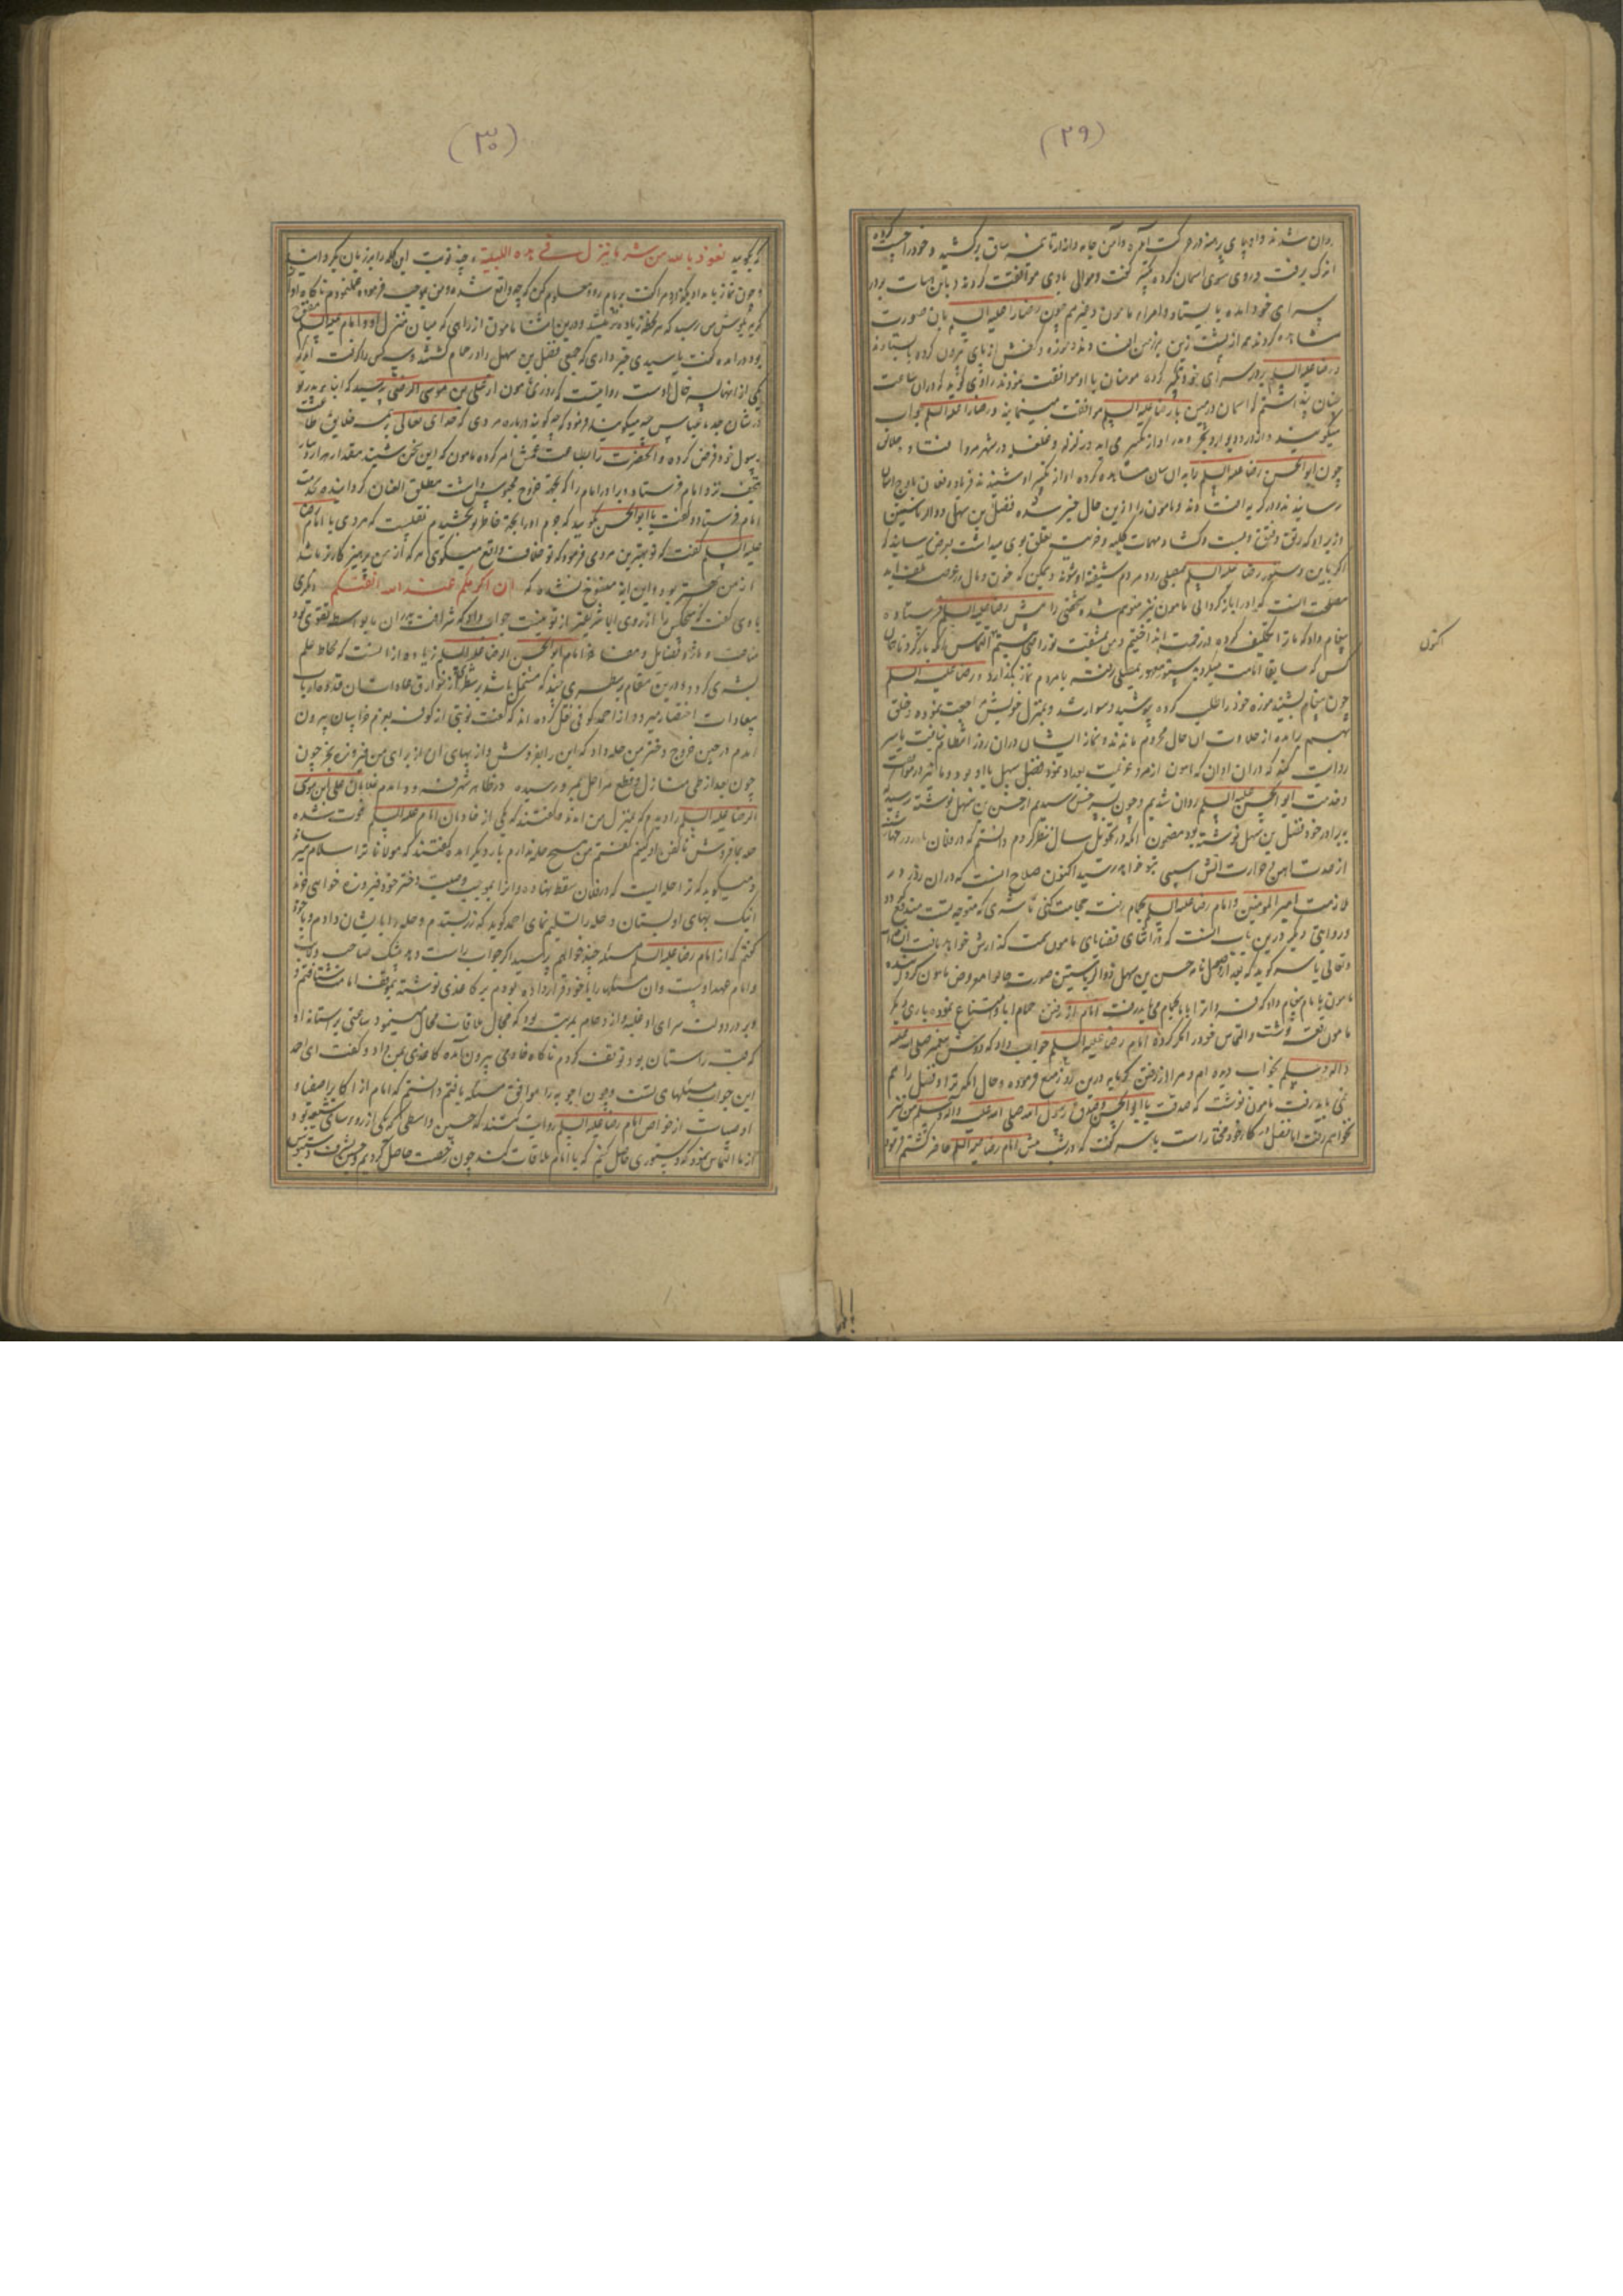 (۲۹)
روان شدند و او پای برهنه در حرکت آمده دامن جامه و ازار تا نیمه ساق برکشید و خود را
اندک برفت و روی سوی آسمان کرده تکبیر گفت و موالی با وی موافقت کردند و باین هیات بر در
سرای خود آمده بایستاد و امراء مامون و غیرهم چون رضا را علیه السلم بان صورت
مشاهده کردند همه از پشت زین بر زمین افتادند و موزه و کفش از پای بیرون کرده بایستادند
و رضا علیه السلم بر در سرای خود تکبیر کرده مومنان با او موافقت نمودند راوی گوید که در ان ساعت
چنان پنداشتم که اسمان و زمین با رضا علیه السلم موافقت مینمایند و رضا را علیه السلم جواب
میگویند و از در و دیوار و شجر و مدر اواز تکبیر می اید و زلزله و غلغله در شهر مرو افتاد و خلایق
چون ابو الحسن رضا علیه السلم را بدان سان مشاهده کرده اواز تکبیر او شنیدند فریاد و فغان باوج اسمان
رسانیدند و در گریه افتادند و مامون را ازین حال خبر شده فضل بن سهل ذو الریاستین
وزیر او که رتق و فتق و بست و گشاد مهمات کلیه و جزئیه تعلق بوی میداشت بعرض رسانید که
اگر باین دستور رضا علیه السلم بمصلی رود مردم شیفته او شوند و ممکن که خون و مال در عرصه تلف اید
مصلحت انست که او را بازگردانی مامون نیز متوهم شده شخصی را پیش رضا علیه السلم فرستاده
پیغام داد که ما ترا تکلیف کرده در زحمت انداختیم و من بمشقت تو راضی نیستم التماس انکه بازگردی تا هر
کس که سابقا امامت میکرد بدستور معهود بمصلی رفته با مردم نماز بگذارد و رضا علیه السلم
چون پیغام بشنید موزه خود را طلب کرده بپوشید و سوار شد و بمنزل خویش مراجعت نموده و خلق
بهم برآمده از حلاوت ان حال محروم ماندند و نماز ایشان در ان روز انتظام نیافت یاسر
روایت کند که در ان اوان که مامون از مرو عزیمت بغداد نمود فضل سهل با او بود و ما نیز در موافقت
و خدمت ابو الحسن علیه السلم روان شدیم و چون بسرخس رسیدیم از حسن بن سهل نوشته رسید
به برادر خود فضل بن سهل نوشته بود مضمون انکه در تحویل سال نظر کردم دانستم که در فلان ماه روز چهارشنبه
از حدت اهن و حرارت اتش اسیبی بتو خواهد رسید اکنون صلاح انست که در ان روز در
ملازمت امیر المومنین و امام رضا علیه السلم بحمام رفته حجامت کنی تا شری که متوجه تست مندفع
و روایتی دیگر درین باب انست که
و تعالی یاسر گوید که بعد از وصول نامه حسن بن سهل ذو الریاستین صورت حال را معروض مامون گردانیده
مامون بامام پیغام داد که فردا ترا با ما بحمام می باید رفت امام از رفتن حمام ابا و امتناع نموده باری دیگر
مامون رقعه نوشت و التماس خود را مکرر کرده امام رضا علیه السلم جواب داد که دوش پیغمبر صلی الله علیه
و اله و سلم بخواب دیده ام و مرا از رفتن گرمابه درین روز منع فرموده و حال انکه ترا و فضل را هم
نمی باید رفت مامون نوشت که صدقت یا ابا الحسن و صدق رسول الله صلی الله علیه و اله و سلم من نیز
نخواهم رفت اما فضل در کار خود مختار است یاسر گفت که در شب پیش امام رضا علیه السلم حاضر گشتم فرمود
اکنون
(۳۰)
که بگویید نعوذ بالله من شر ما ینزل فی هذه اللیلة و چند نوبت این کلمه را بر زبان بگردانید
و چون نماز بامداد بگزارد مرا گفت بر بام رو و معلوم کن که چه واقع شده و من بموجب فرموده عمل نمودم ناگاه اواز
گریه بگوش من رسید که هر لحظه زیاده میشد و درین اثنا مامون از راهی که میان منزل او و امام علیه السلم
بود درامده گفت یا سیدی خبر داری که جمعی فضل بن سهل را در حمام کشتند و سه کس را گرفته اند که
یکی از انها پسر خال اوست روایتست که روزی مامون از علی بن موسی الرضی پرسید که ابناء پدر تو
در شان جد ما عباس چه میگویند فرمود که چه گویند درباره مردی که خدای تعالی بر همه خلایق طاعت
رسول خود فرض کرده و انحضرت را بطاعت عمش امر کرده مامون که این سخن شنید مقدار هزار دینار
بتحف نزد امام فرستاد و برادر امام را که بجهة خروج محبوس داشت مطلق العنان گردانیده بخدمت
امام فرستاد و گفت با ابو الحسن بگویید که جرم او را بجهة خاطر تو بخشیدیم نقلیست که مردی با امام رضا
علیه السلم گفت که تو بهترین مردمی فرمود که تو خلاف واقع میگوی هر که از من پرهیزگارتر باشد
از من بهتر بود و این ایه منسوخ نشده که ان اکرمکم عند الله اتقیکم و دیگری
با وی گفت که هیچکس را از روی ابا شرفی از تو نیست جواب داد که شرافت پدران ما بواسطه تقوی بود
مناقب و ماثر و فضایل و مفاخر امام ابو الحسن الرضا علیه السلم زیاده از انست که محاط علم
بشری گردد و درین مقام بر سطری چند که مشتمل باشد بر شطری از خوارق عادات ان قدوه ارباب
سعادات اختصار میرود از احمد کوفی نقل کرده اند که گفت نوبتی از کوفه بعزم خراسان بیرون
امدم در حین خروج دختر من حله داد که این را بفروش و از بهای ان از برای من فیروزه بخر چون
چون بعد از طی منازل و قطع مراحل بمرو رسیده در خانه بنزفه فرود امدم غلامان علی ابن موسی
الرضا علیه السلم را دیدم که بمنزل من امدند و گفتند که یکی از خادمان امام علیه السلم فوت شده
حله بما فروش تا کفن او کنیم گفتم من هیچ حله ندارم بار دیگر امده گفتند که مولانا ترا سلام میرساند
و میگوید که ترا حله ایست که در فلان سفط نهاده و انرا بموجب وصیت دختر خود فیروزه خواهی خرید
اینک بهای او بستان و حله را تسلیم نمای احمد گوید که زر بستدم و حله را بایشان دادم و با خود
گفتم که از امام رضا علیه السلم مسئله چند خواهم پرسید اگر جواب راست دهد بیشک صاحب ولایت
و امام عهد اوست و ان مسئلها را با خود قرار داده بودم بر کاغذی نوشته بموقف امامت شتافتم و
بر در دولت سرای او غلبه و ازدحام بمرتبه بود که مجال ملاقات محال مینمود ساعتی بر ستانه او
که قبله راستان بود توقف کردم ناگاه خادمی بیرون امده کاغذی بمن داد و گفت ای احمد
این جواب مسئلهای تست و چون اجوبه را موافق مسئله یافتم دانستم که امام از اکابر اصفیا و
اوصیاست از خواص امام رضا علیه السلم روایت کنند که حسین واسطی که یکی از روسای شیعه بود
از ما التماس نمود که دستوری حاصل کنیم که با امام ملاقات کند چون رخصت حاصل کردیم و حسین بشرف دستبوس